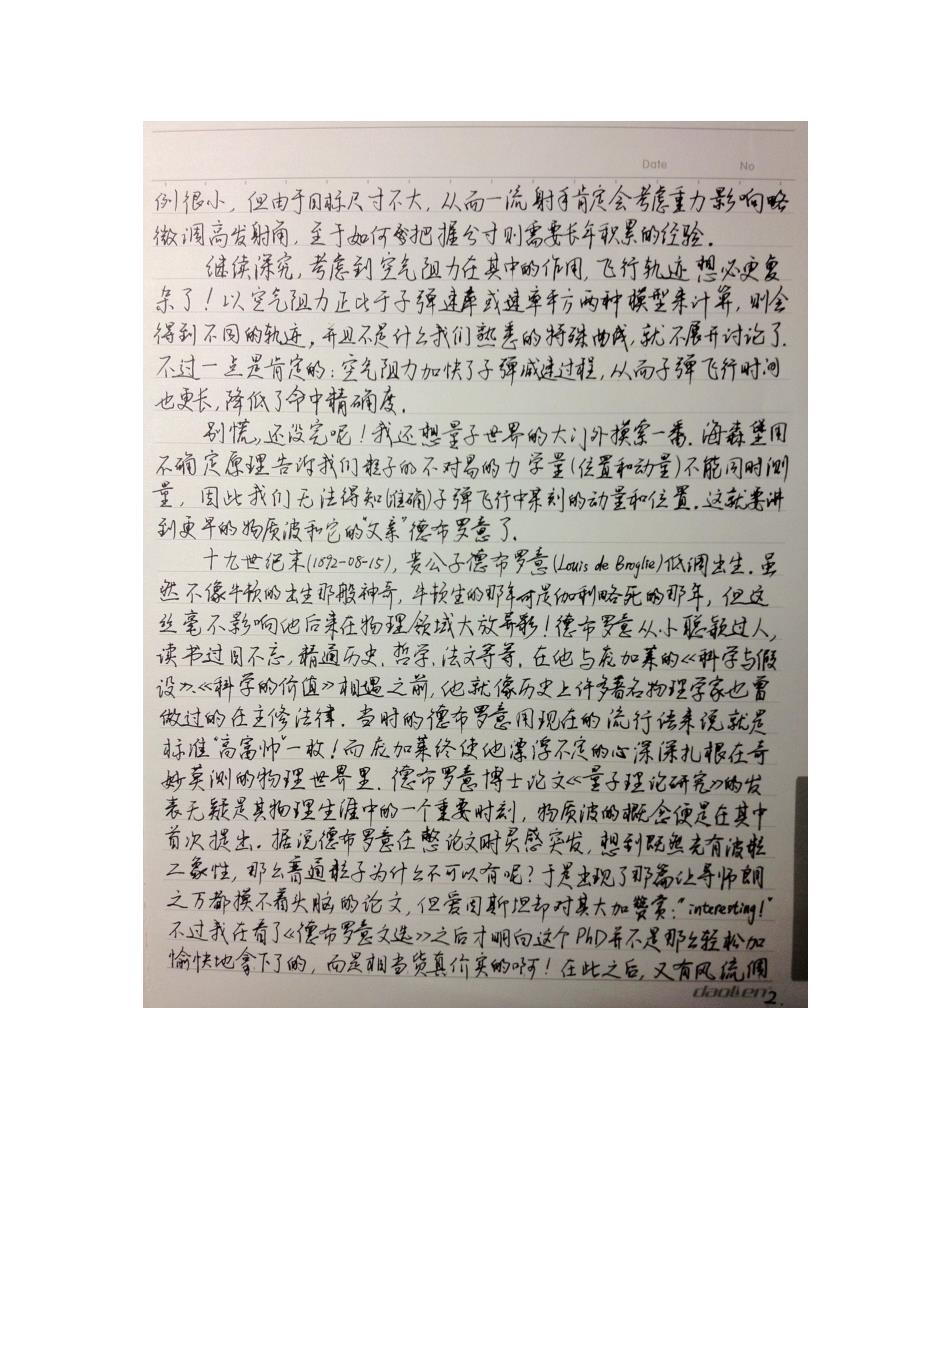 Date No
例很小，但由于目标尺寸不大，从而一流射手肯定会考虑重力影响略
微调高发射角，至于如何把握分寸则需要长年积累的经验．
继续深究，考虑到空气阻力在其中的作用，飞行轨迹想必更复
杂了！以空气阻力正比于子弹速率或速率平方两种模型来计算，则会
得到不同的轨迹，并且不是什么我们熟悉的特殊曲线，就不展开讨论了．
不过一点是肯定的：空气阻力加快了子弹减速过程，从而子弹飞行时间
也更长，降低了命中精确度．
别慌，还没完呢！我还想量子世界的大门外摸索一番．海森堡用
不确定原理告诉我们粒子的不对易的力学量(位置和动量)不能同时测
量，因此我们无法得知(准确)子弹飞行中某刻的动量和位置．这就要讲
到更早的物质波和它的"父亲"德布罗意了．
十九世纪末(1892-08-15)，贵公子德布罗意(Louis de Broglie)低调出生．虽
然不像牛顿的出生那般神奇，牛顿生的那年可是伽利略死的那年，但这
丝毫不影响他后来在物理领域大放异彩！德布罗意从小聪颖过人，
读书过目不忘，精通历史．哲学．法文等等．在他与庞加莱的《科学与假
设》．《科学的价值》相遇之前，他就像历史上许多著名物理学家也曾
做过的在主修法律．当时的德布罗意用现在的流行语来说就是
标准"高富帅"一枚！而庞加莱终使他漂浮不定的心深深扎根在奇
妙莫测的物理世界里．德布罗意博士论文《量子理论研究》的发
表无疑是其物理生涯中的一个重要时刻，物质波的概念便是在其中
首次提出．据说德布罗意在憋论文时灵感突发，想到既然光有波粒
二象性，那么普通粒子为什么不可以有呢？于是出现了那篇让导师朗
之万都摸不着头脑的论文，但爱因斯坦却对其大加赞赏："interesting!"
不过我在看了《德布罗意文选》之后才明白这个PhD并不是那么轻松加
愉快地拿下了的，而是相当货真价实的啊！在此之后，又有风流倜
daolien 2.